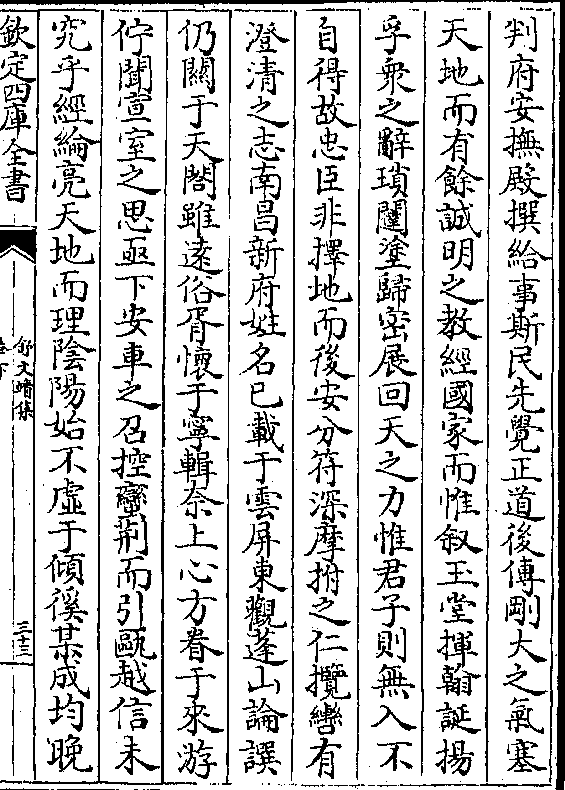 判府安撫殿撰給事斯民先覺正道後傳剛大之氣塞
天地而有餘誠明之教經國家而惟叙玉堂揮翰誕揚
孚衆之辭瑣闥塗歸密展回天之力惟君子則無入不
自得故忠臣非擇地而後安分符深摩拊之仁攬轡有
澄清之志南昌新府姓名已載于雲屏東觀蓬山論譔
仍闗于天閣雖遠俗胥懷于寧輯奈上心方眷于來游
佇聞宣室之思亟下安車之召控蠻荆而引甌越信未
究乎經綸亮天地而理陰陽始不虛于傾徯某成均晚
欽定四庫全書
舒文靖集
卷下
三十三